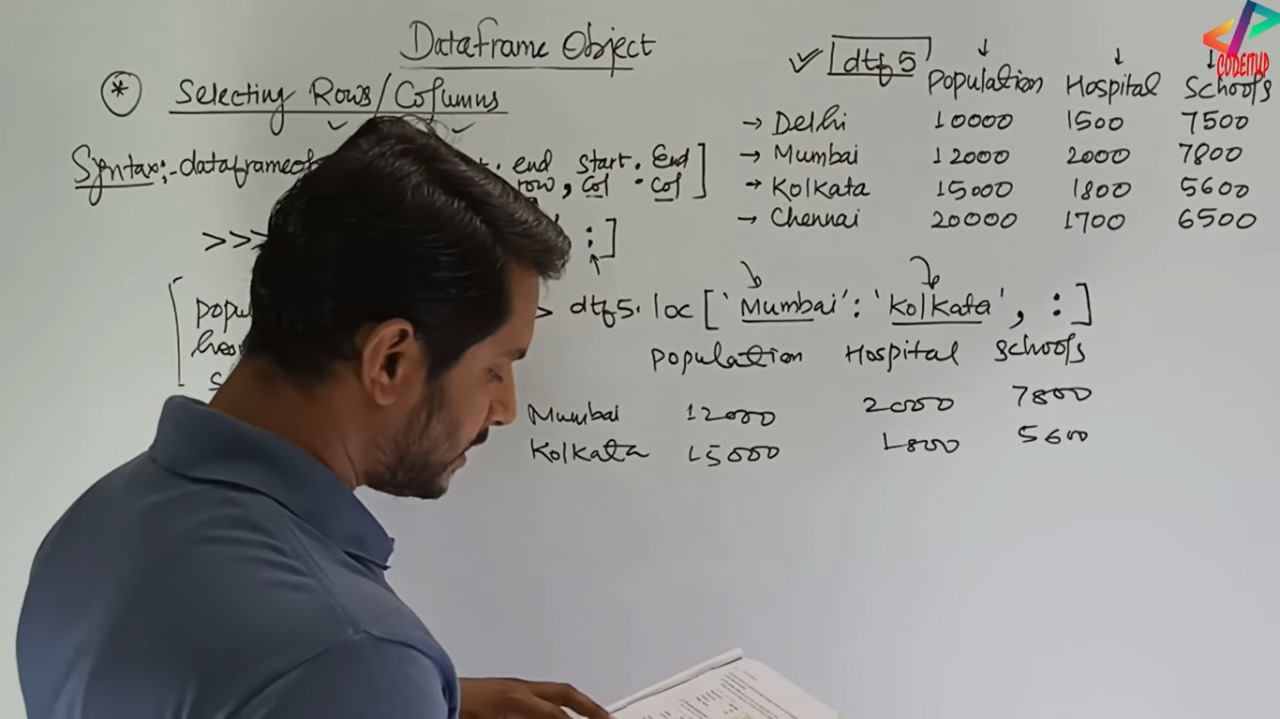 Dataframe Object
* Selecting Rows/Columns
Syntax:- dataframeob end start : End
row, Col : Col]
>>> :]
popul
hos
s
✓ dtf5
Population Hospital Schools
→ Delhi 10000 1500 7500
→ Mumbai 12000 2000 7800
→ Kolkata 15000 1800 5600
→ Chennai 20000 1700 6500
> dtf5.loc['Mumbai':'Kolkata', :]
Population Hospital Schools
Mumbai 12000 2000 7800
Kolkata 15000 1800 5600
CODEITUP